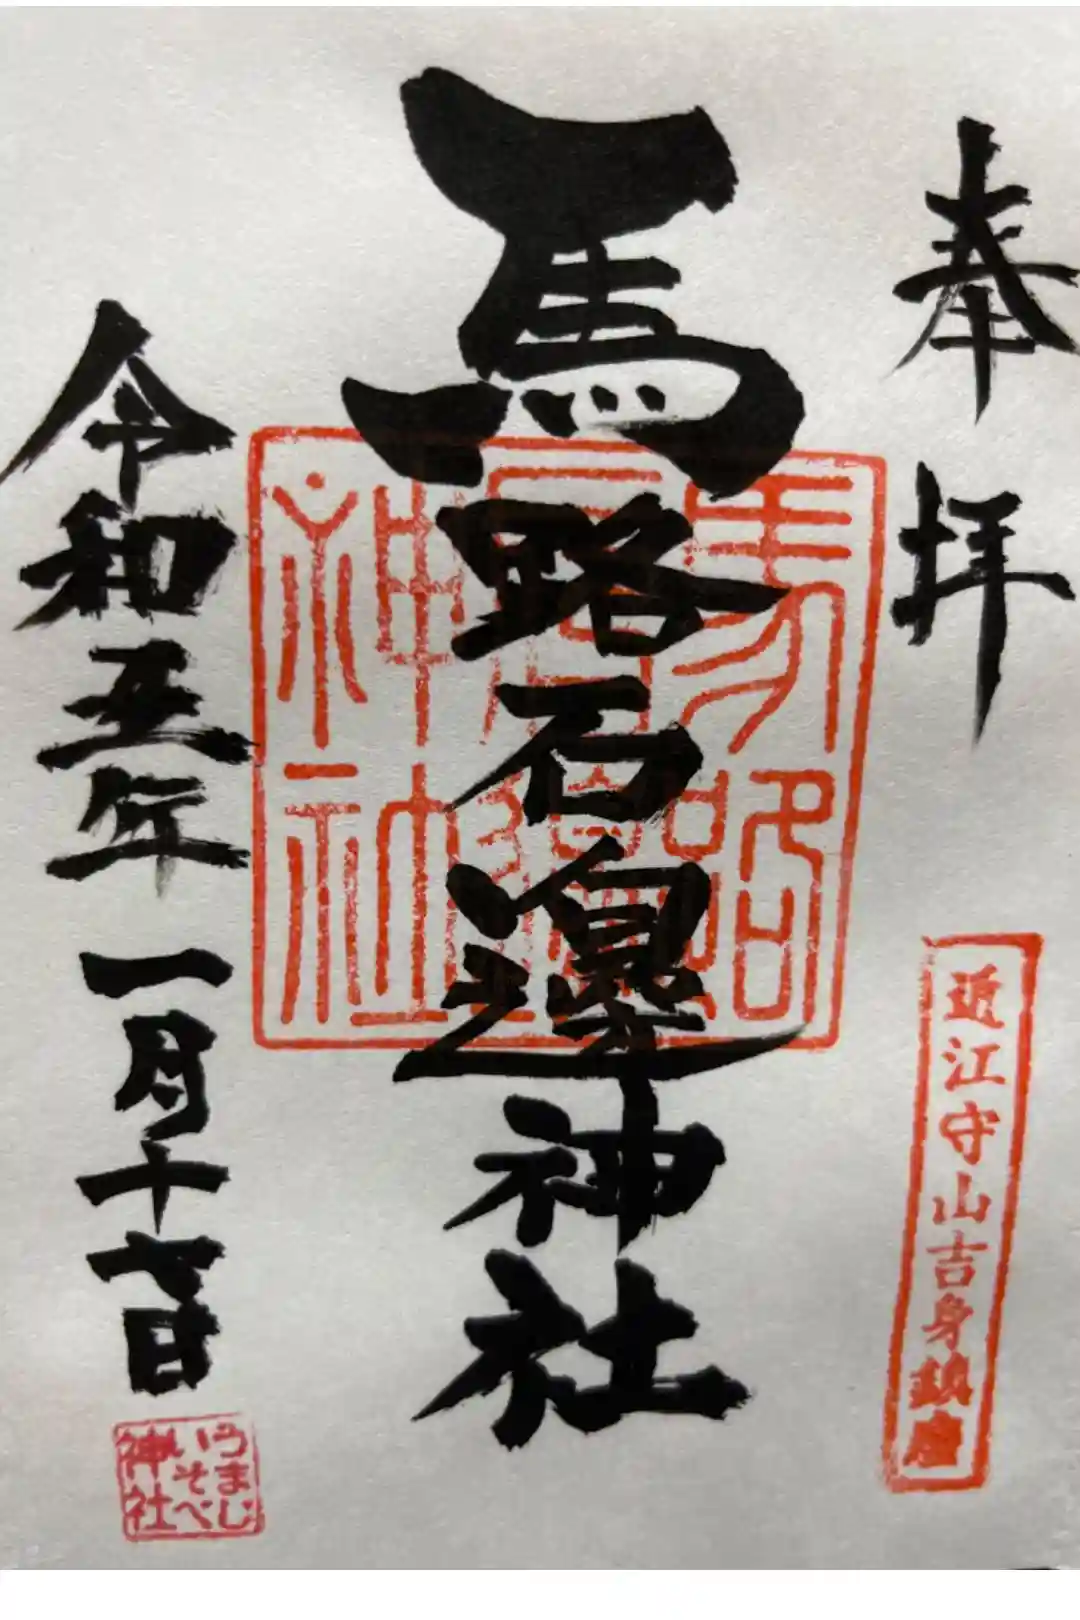 奉拝
近江守山吉身鎮座
馬路石邊神社
馬路
石邊
神社
令和五年一月十七日
うまじ
いそべ
神社